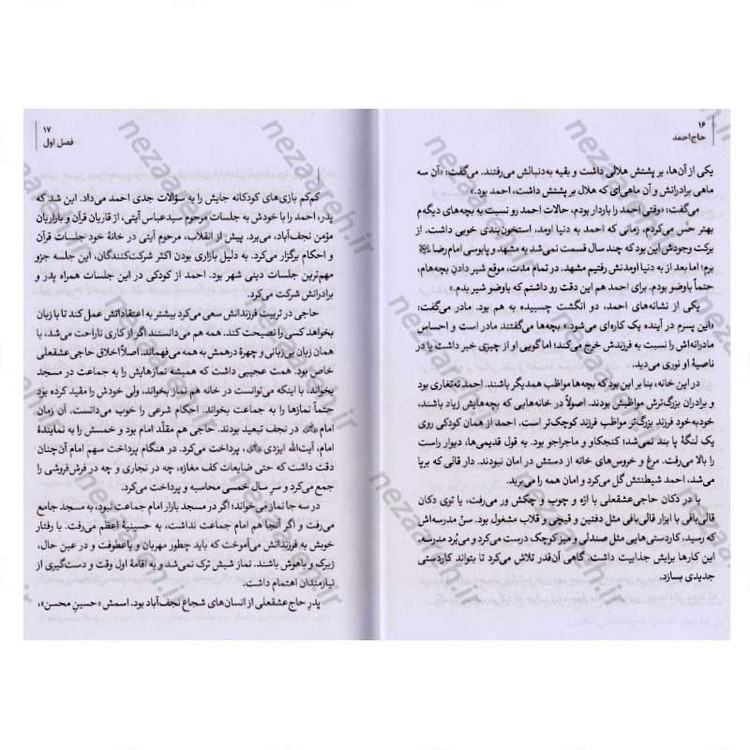 ۱۶
حاج‌احمد
یکی از آن‌ها، بر پشتش هلالی داشت و بقیه به‌دنبالش می‌رفتند. می‌گفت: «آن سه
ماهی برادرانش و آن ماهی‌ای که هلال بر پشتش داشت، احمد بود.»
می‌گفت: «وقتی احمد را باردار بودم، حالات احمد رو نسبت به بچه‌های دیگه‌م
بهتر حس می‌کردم. زمانی که احمد به دنیا اومد، استخون‌بندی خوبی داشت. از
برکت وجودش این بود که چند سال قسمت نمی‌شد به مشهد و پابوسی امام‌رضا
برم؛ اما بعد از به دنیا اومدنش رفتیم مشهد. در تمام مدت، موقع شیر دادن بچه‌هام،
حتماً باوضو بودم. برای احمد هم این دقت رو داشتم که باوضو شیر بدم.»
یکی از نشانه‌های احمد، دو انگشت چسبیده به هم بود. مادر می‌گفت:
«این پسرم در آینده یک کاره‌ای می‌شود.» بچه‌ها می‌گفتند مادر است و احساس
مادرانه‌اش را نسبت به فرزندش خرج می‌کند؛ اما گویی او از چیزی خبر داشت یا در
ناصیهٔ او نوری می‌دید.
در این خانه، بنا بر این بود که بچه‌ها مواظب همدیگر باشند. احمد ته‌تغاری بود
و برادران بزرگ‌ترش مواظبش بودند. اصولاً در خانه‌هایی که بچه‌هایش زیاد باشند،
خودبه‌خود فرزند بزرگ‌تر مواظب فرزند کوچک‌تر است. احمد از همان کودکی روی
یک لنگهٔ پا بند نمی‌شد؛ کنجکاو و ماجراجو بود. به قول قدیمی‌ها، دیوار راست
را بالا می‌رفت. مرغ و خروس‌های خانه از دستش در امان نبودند. دار قالی که برپا
می‌شد، احمد شیطنتش گل می‌کرد و امان همه را می‌برید.
یا در دکان حاجی‌عشقعلی با اره و چوب و چکش ور می‌رفت، یا توی دکان
قالی‌بافی با ابزار قالی‌بافی مثل دفتین و قیچی و قلاب مشغول بود. سنّ مدرسه‌اش
که رسید، کاردستی‌هایی مثل صندلی و میز کوچک درست می‌کرد و می‌بُرد مدرسه.
این کارها برایش جذابیت داشت. گاهی آن‌قدر تلاش می‌کرد تا بتواند کاردستی
جدیدی بسازد.
۱۷
فصل اول
کم‌کم بازی‌های کودکانه جایش را به سؤالات جدی احمد می‌داد. این شد که
پدر، احمد را با خودش به جلسات مرحوم سیدعباس آیتی، از قاریان قرآن و بازاریان
مؤمن نجف‌آباد، می‌برد. پیش از انقلاب، مرحوم آیتی در خانهٔ خود جلسات قرآن
و احکام برگزار می‌کرد. به دلیل بازاری بودن اکثر شرکت‌کنندگان، این جلسه جزو
مهم‌ترین جلسات دینی شهر بود. احمد از کودکی در این جلسات همراه پدر و
برادرانش شرکت می‌کرد.
حاجی در تربیت فرزندانش سعی می‌کرد بیشتر به اعتقاداتش عمل کند تا با زبان
بخواهد کسی را نصیحت کند. همه هم می‌دانستند اگر از کاری ناراحت می‌شد، با
همان زبان بی‌زبانی و چهرهٔ درهمش به همه می‌فهماند. اصلاً اخلاق حاجی عشقعلی
خاص بود. همت عجیبی داشت که همیشه نمازهایش را به جماعت در مسجد
بخواند. با اینکه می‌توانست در خانه هم نماز بخواند، ولی خودش را مقید کرده بود
حتماً نمازها را به جماعت بخواند. احکام شرعی را خوب می‌دانست. آن زمان
امام در نجف تبعید بودند. حاجی هم مقلّد امام بود و خمسش را به نمایندهٔ
امام، آیت‌الله ایزدی پرداخت می‌کرد. در هنگام پرداخت سهم امام آن‌چنان
دقت داشت که حتی ضایعات کف مغازه، چه در نجاری و چه در فرش‌فروشی را
جمع می‌کرد و سر سال خمسی محاسبه و پرداخت می‌کرد.
در سه جا نماز می‌خواند؛ اگر در مسجد بازار امام جماعت نبود، به مسجد جامع
می‌رفت و اگر آنجا هم امام جماعت نداشت، به حسینیهٔ اعظم می‌رفت. با رفتار
خویش به فرزندانش می‌آموخت که باید چطور مهربان و باعطوفت و در عین حال،
زیرک و باهوش باشند. نماز شبش ترک نمی‌شد و به اقامهٔ اول وقت و دست‌گیری از
نیازمندان اهتمام داشت.
پدرِ حاج عشقعلی از انسان‌های شجاع نجف‌آباد بود. اسمش «حسینِ محسن»،
nezaareh.ir
nezaareh.ir
nezaareh.ir
nezaareh.ir
nezaareh.ir
nezaareh.ir